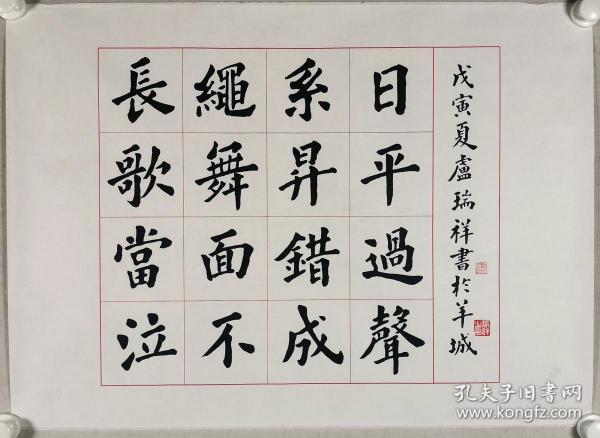 長繩系日
歌舞昇平
當面錯過
泣不成聲
戊寅夏盧瑞祥書於羊城
孔夫子旧书网
www.kongfz.com